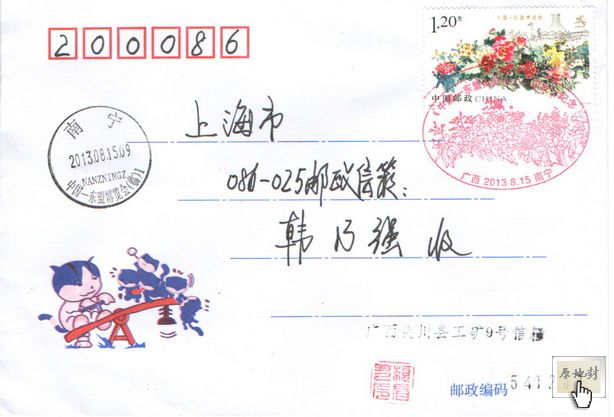 200086
1.20元
中国—东盟博览会
中国邮政 CHINA
南宁
2013.08.15.09
NANZNINGZ
中国—东盟博览会(临)1
广西 2013.8.15 南宁
上海市
086-025邮政信箱:
韩乃强 收
广西灵川县工矿9号信箱
邮政编码 5412
原地封